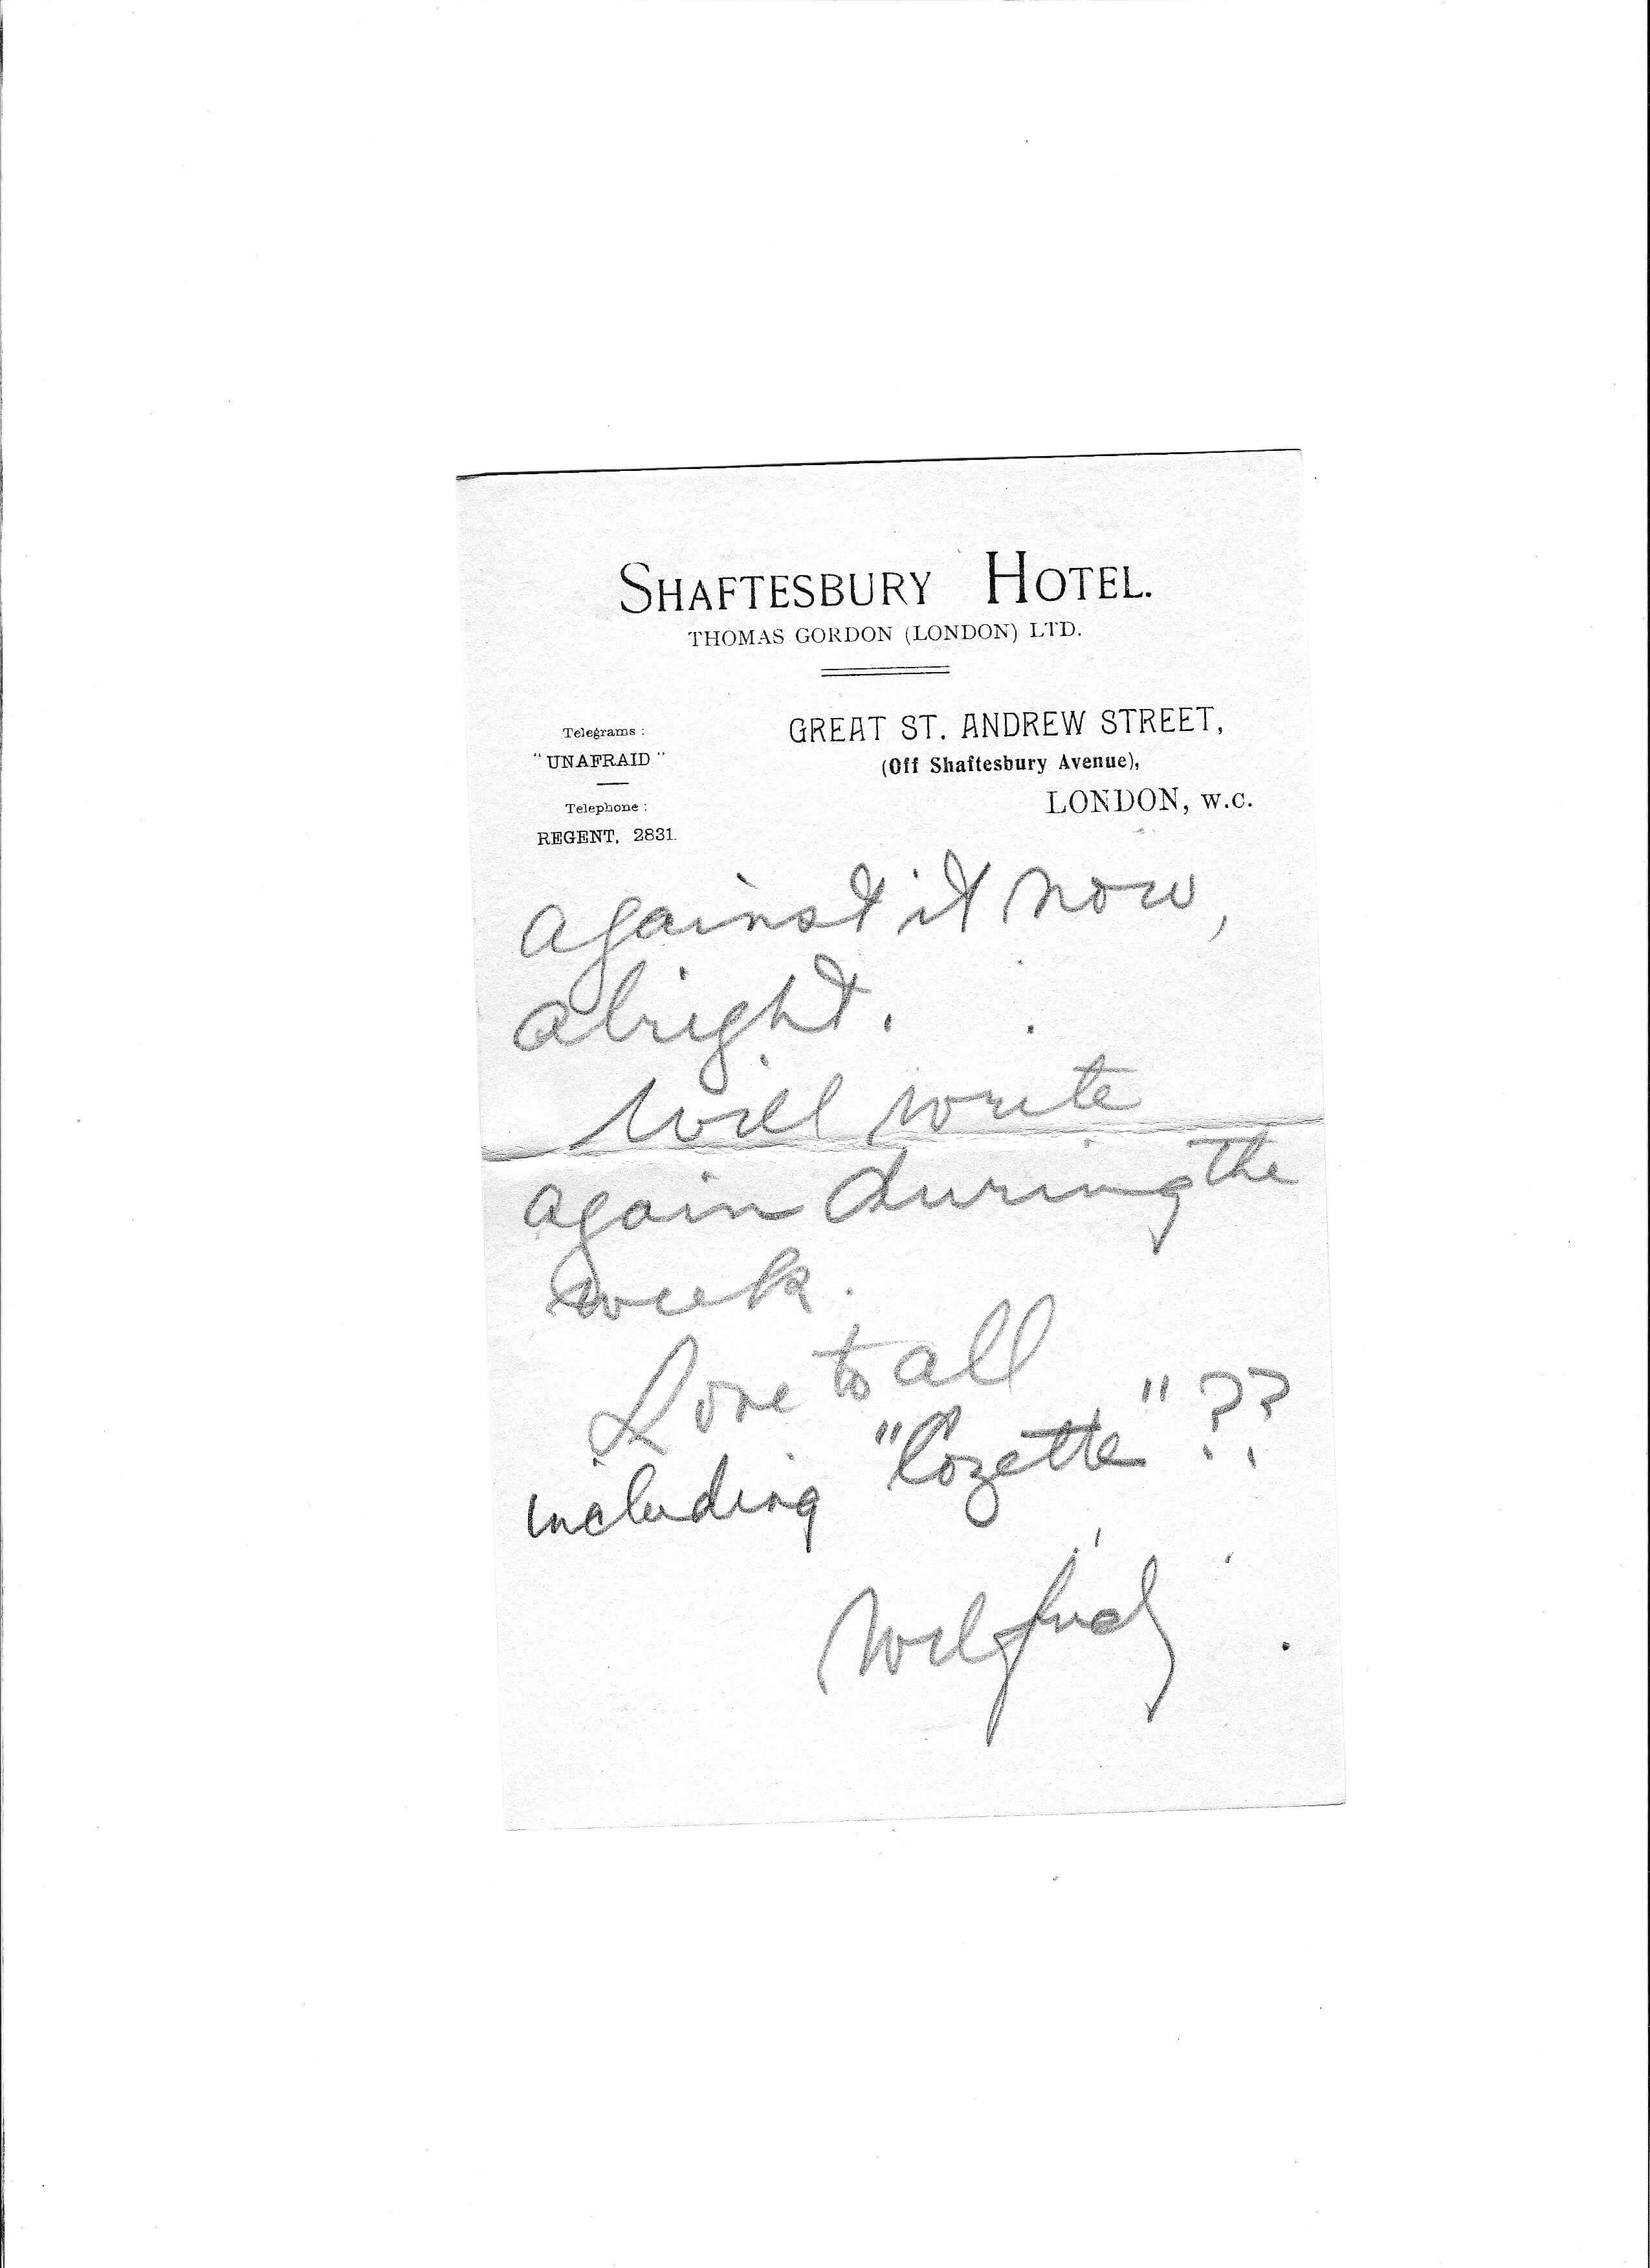 SHAFTESBURY HOTEL.
THOMAS GORDON (LONDON) LTD.
Telegrams :
"UNAFRAID"
Telephone :
REGENT, 2831.
GREAT ST. ANDREW STREET,
(Off Shaftesbury Avenue),
LONDON, W.C.
against it now,
alright.
Will write
again during the
week.
Love to all
including "Cozette" ??
Wilfred